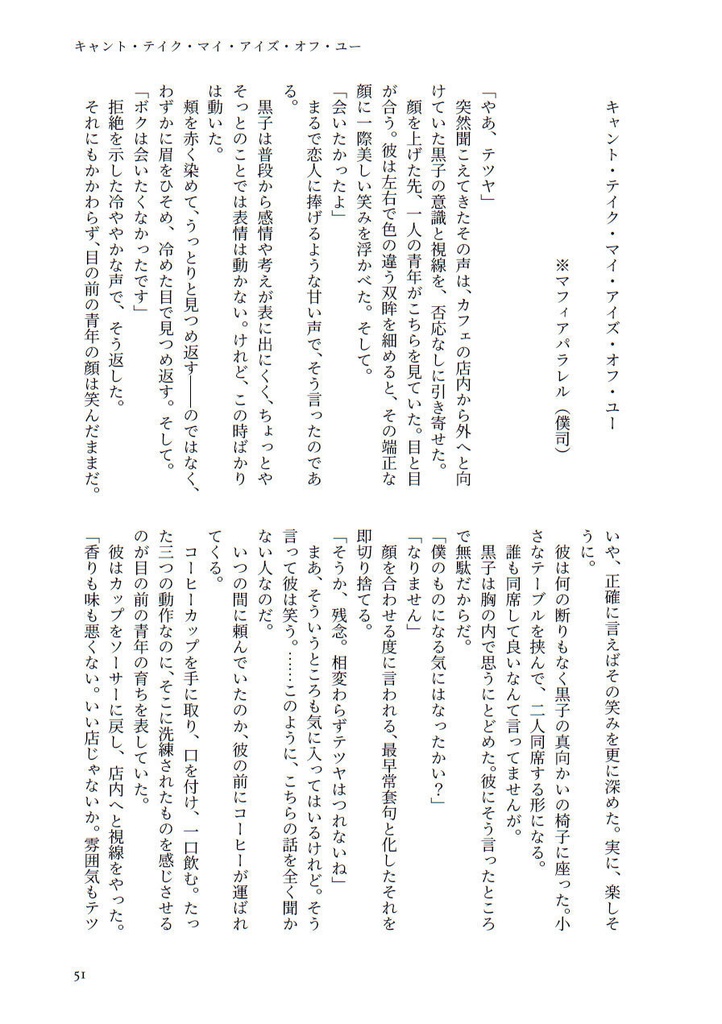 キャント・テイク・マイ・アイズ・オフ・ユー
キャント・テイク・マイ・アイズ・オフ・ユー
※マフィアパラレル（僕司）
「やあ、テツヤ」
突然聞こえてきたその声は、カフェの店内から外へと向
けていた黒子の意識と視線を、否応なしに引き寄せた。
顔を上げた先、一人の青年がこちらを見ていた。目と目
が合う。彼は左右で色の違う双眸を細めると、その端正な
顔に一際美しい笑みを浮かべた。そして。
「会いたかったよ」
まるで恋人に捧げるような甘い声で、そう言ったのであ
る。
黒子は普段から感情や考えが表に出にくく、ちょっとや
そっとのことでは表情は動かない。けれど、この時ばかり
は動いた。
頬を赤く染めて、うっとりと見つめ返す――のではなく、
わずかに眉をひそめ、冷めた目で見つめ返す。そして。
「ボクは会いたくなかったです」
拒絶を示した冷ややかな声で、そう返した。
それにもかかわらず、目の前の青年の顔は笑んだままだ。
いや、正確に言えばその笑みを更に深めた。実に、楽しそ
うに。
彼は何の断りもなく黒子の真向かいの椅子に座った。小
さなテーブルを挟んで、二人同席する形になる。
誰も同席して良いなんて言ってませんが。
黒子は胸の内で思うにとどめた。彼にそう言ったところ
で無駄だからだ。
「僕のものになる気にはなったかい？」
「なりません」
顔を合わせる度に言われる、最早常套句と化したそれを
即切り捨てる。
「そうか、残念。相変わらずテツヤはつれないね」
まあ、そういうところも気に入ってはいるけれど。そう
言って彼は笑う。……このように、こちらの話を全く聞か
ない人なのだ。
いつの間に頼んでいたのか、彼の前にコーヒーが運ばれ
てくる。
コーヒーカップを手に取り、口を付け、一口飲む。たっ
た三つの動作なのに、そこに洗練されたものを感じさせる
のが目の前の青年の育ちを表していた。
彼はカップをソーサーに戻し、店内へと視線をやった。
「香りも味も悪くない。いい店じゃないか。雰囲気もテツ
51